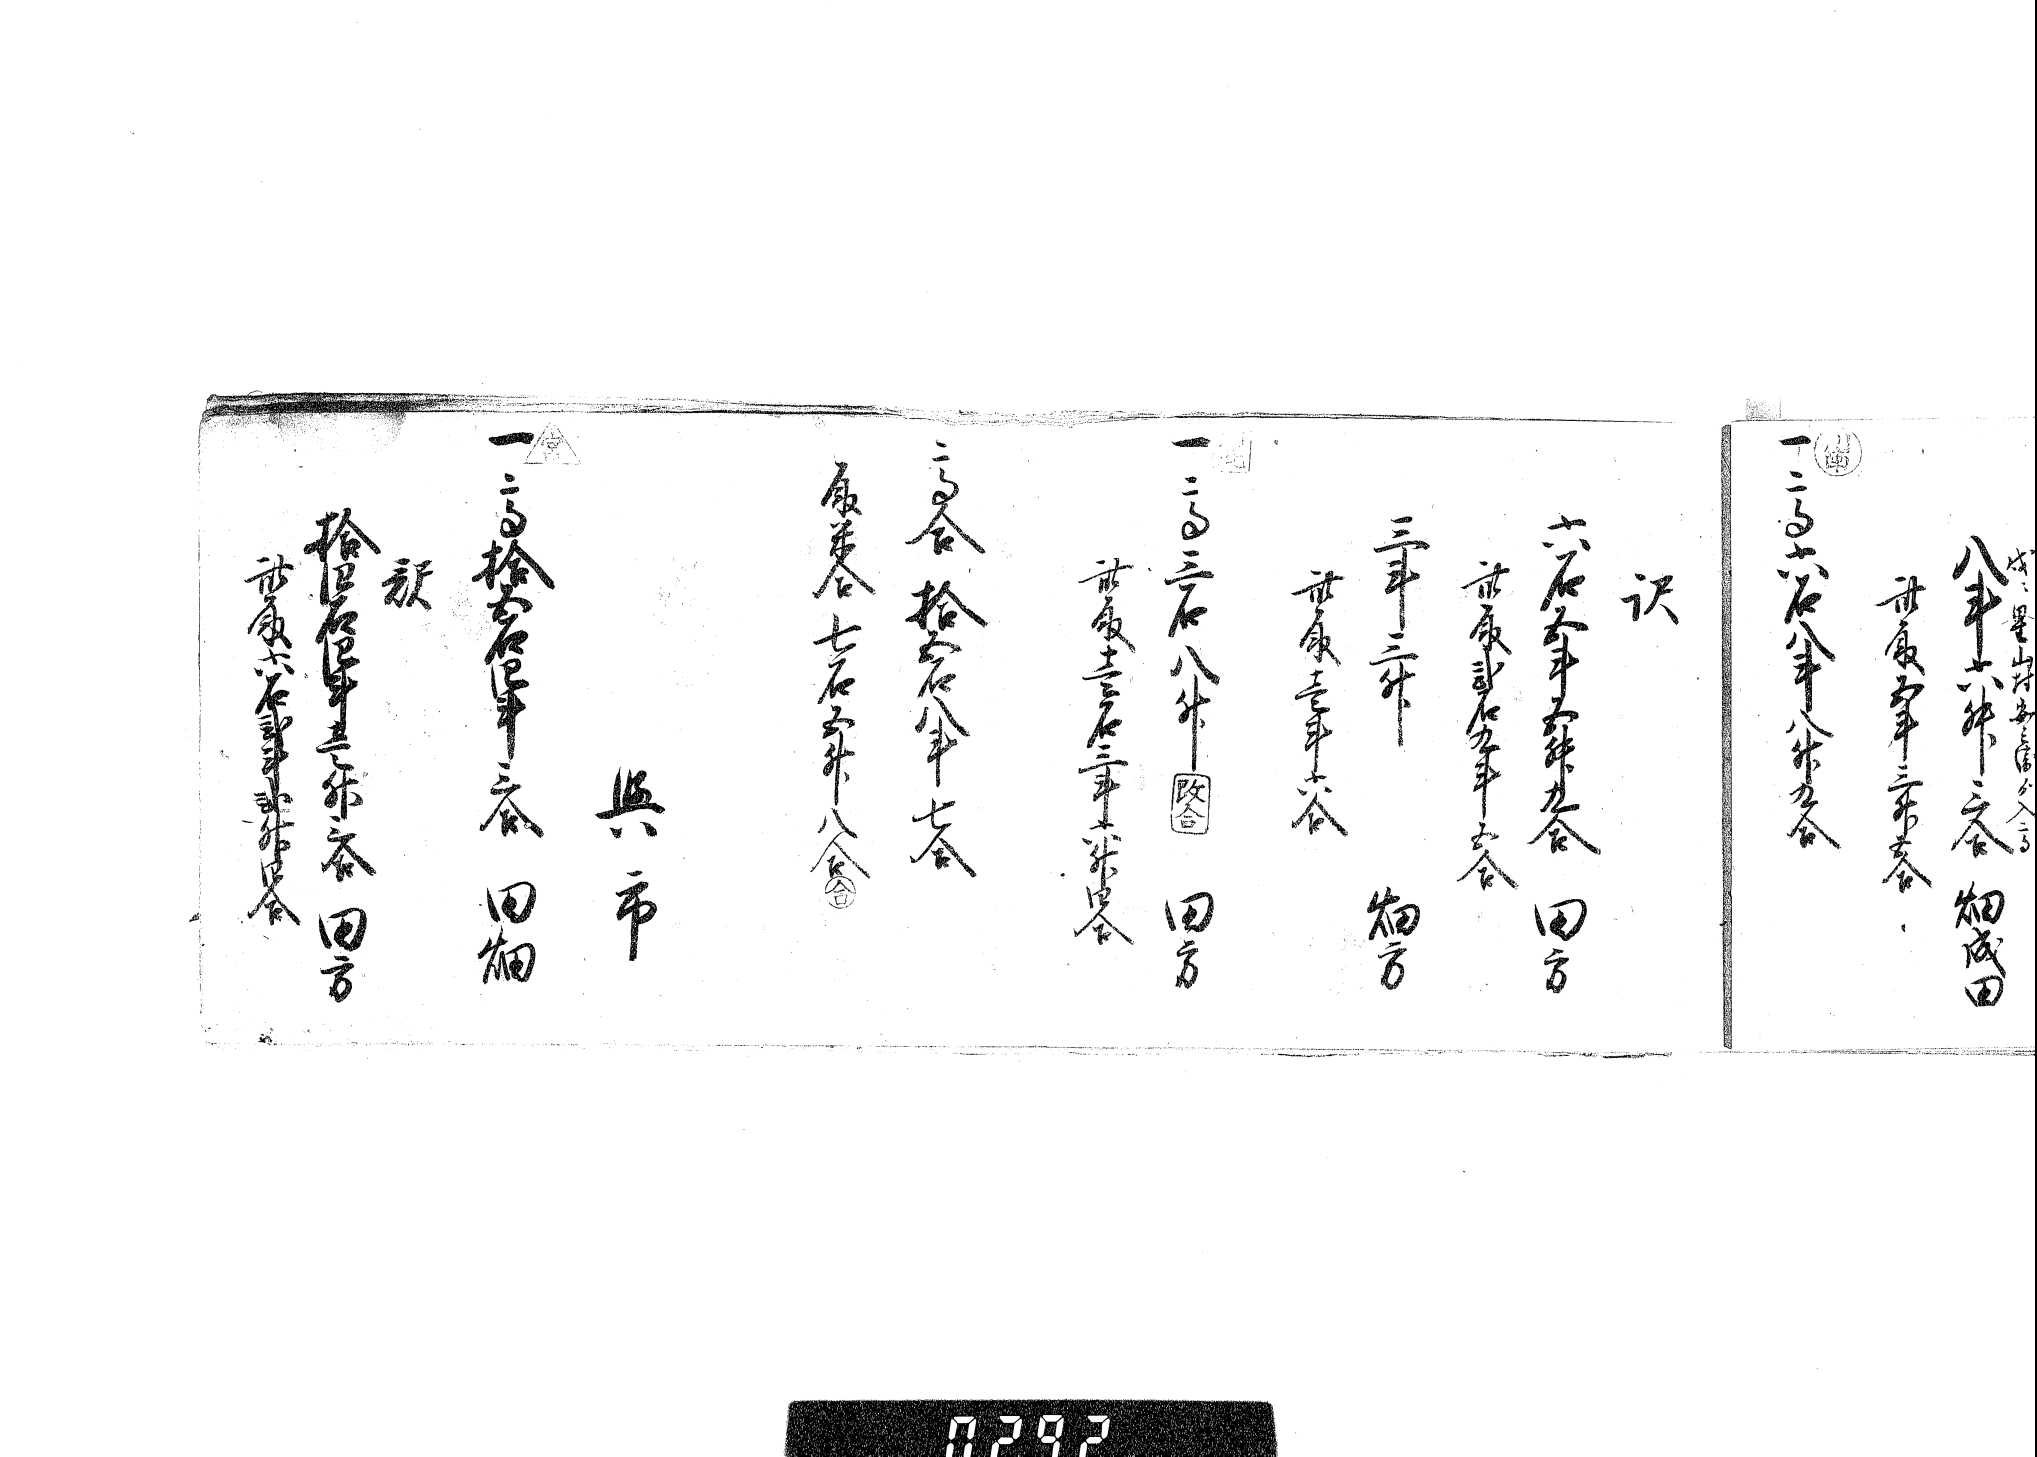 八斗六升三合　畑成田
此取五斗三升五合
一　高六石八斗八升九合
訳
六石五斗五升九合　田方
此取弐石九斗五合
三斗三升　畑方
此取壱斗六合
一　高三石八升　改合　田方
此取壱石三斗六升四合
高合　拾五石八斗七合
取米合　七石五升八合　合
與市
一　高拾五石四斗三合　田畑
訳
拾四石四斗壱升三合　田方
此取六石弐斗弐升四合
0292